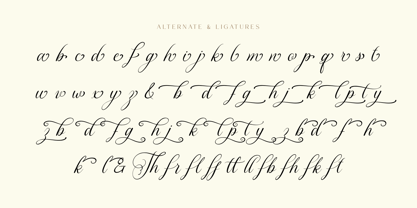 ALTERNATE & LIGATURES
a b c d e f g h i j k l m n o p q r s t
u v w x y z & b d f g h j k l p t y
z b d f g h j k l p t y z b d f h
k l & Th fr fl ff tt ll fb fh fk ft